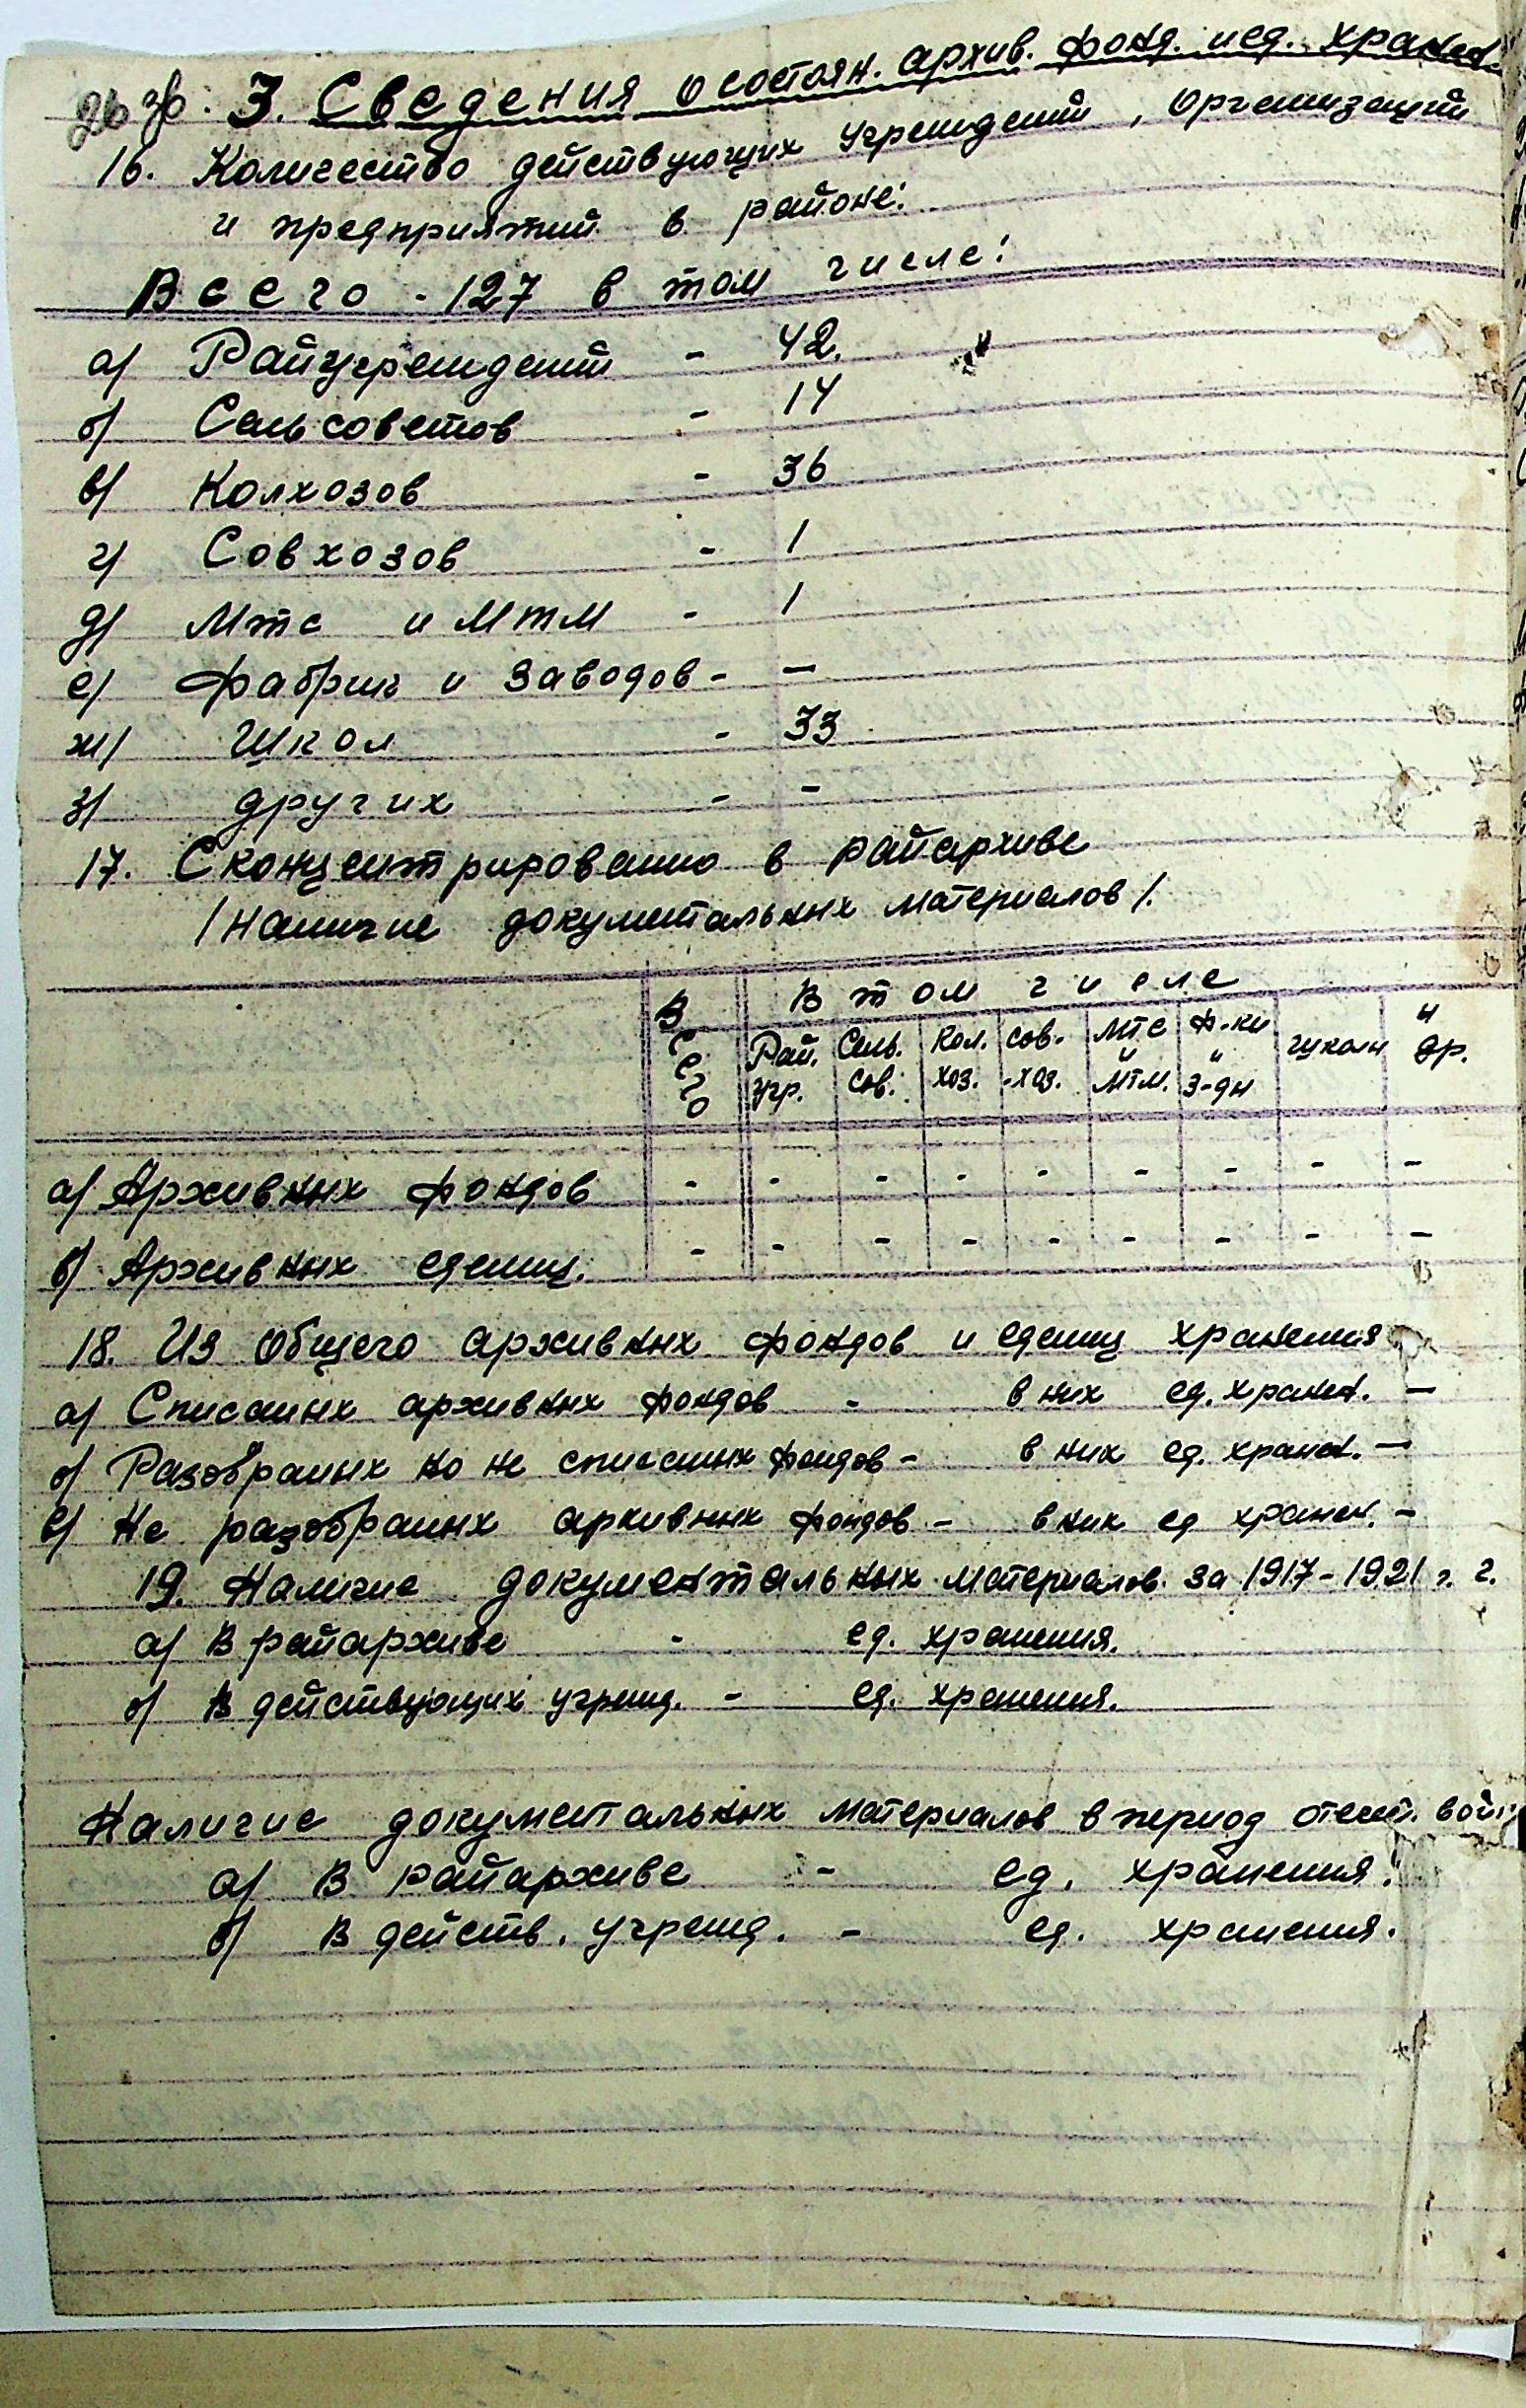 26 об. 3. Сведения о состоян. архив. фонд. и ед. хранен.
16. Количество действующих учреждений, организаций
и предприятий в районе:
Всего - 127 в том числе:
а) Райучреждений - 42.
б) Сельсоветов - 14
в) Колхозов - 36
г) Совхозов - 1
д) Мтс и МТМ - 1
е) фабрик и заводов - —
ж) Школ - 33
з) других - -
17. Сконцентрировано в райархиве
/Наличие документальных материалов/.
Всего В том числе
Рай. учр. Сель. сов. Кол. хоз. сов. -хоз. МТС и МТМ. Ф-ки и З-ды школы и др.
а) Архивных фондов - - - - - - - - -
б) Архивных единиц. - - - - - - - - -
18. Из общего архивных фондов и едениц хранения
а) Списаных архивных фондов - в них ед. хранен. —
б) Разобраных но не списаных фондов - в них ед. хранен. —
в) Не разобраных архивных фондов - в них ед хранен. -
19. Наличие документальных материалов за 1917-1921 г. г.
а) В райархиве - ед. хранения.
б) В действующих учрежд. - ед. хранения.
Наличие документальных материалов в период отечест.
а) В райархиве - ед. хранения.
б) В действ. учрежд. - ед. хранения.